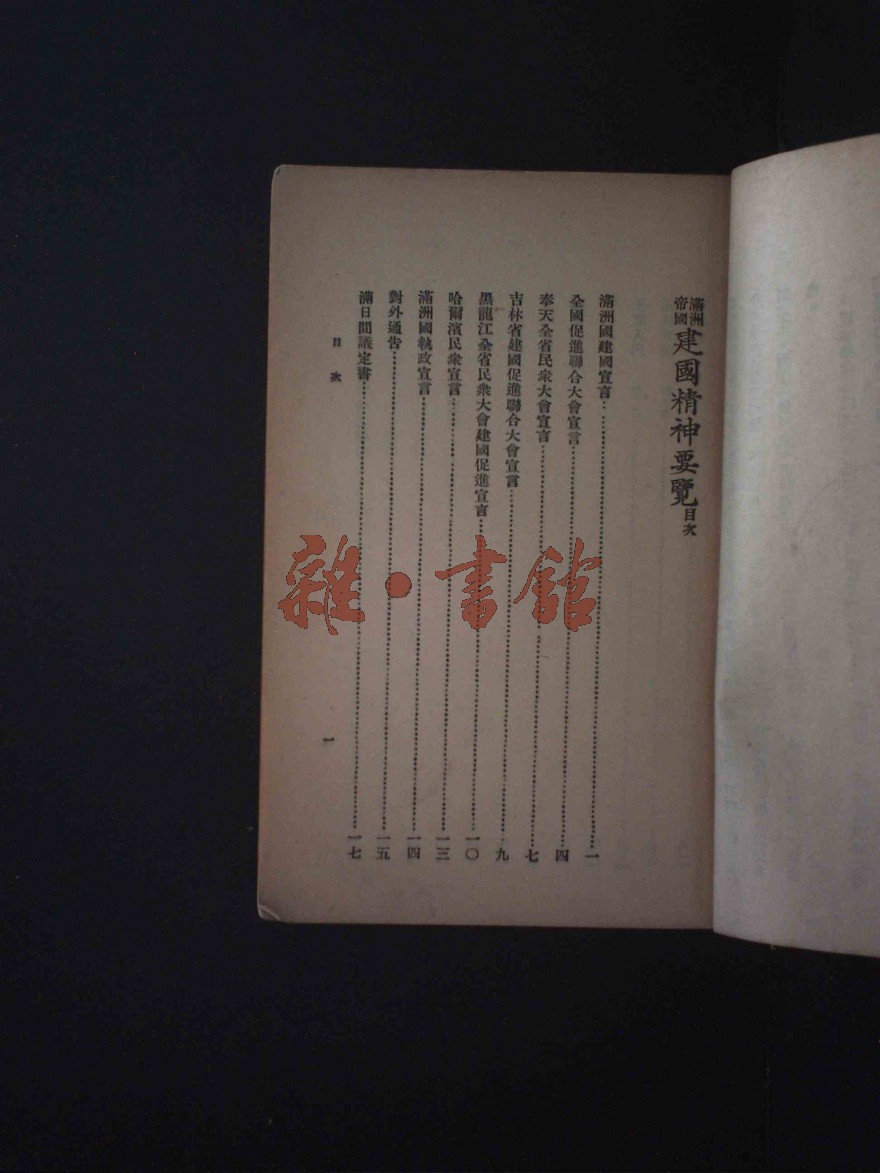 滿洲帝國建國精神要覽目次
滿洲國建國宣言……一
全國促進聯合大會宣言……四
奉天全省民衆大會宣言……七
吉林省建國促進聯合大會宣言……九
黑龍江全省民衆大會建國促進宣言……一〇
哈爾濱民衆宣言……一三
滿洲國執政宣言……一四
對外通告……一五
滿日間議定書……一七
目次
一
雜·書館